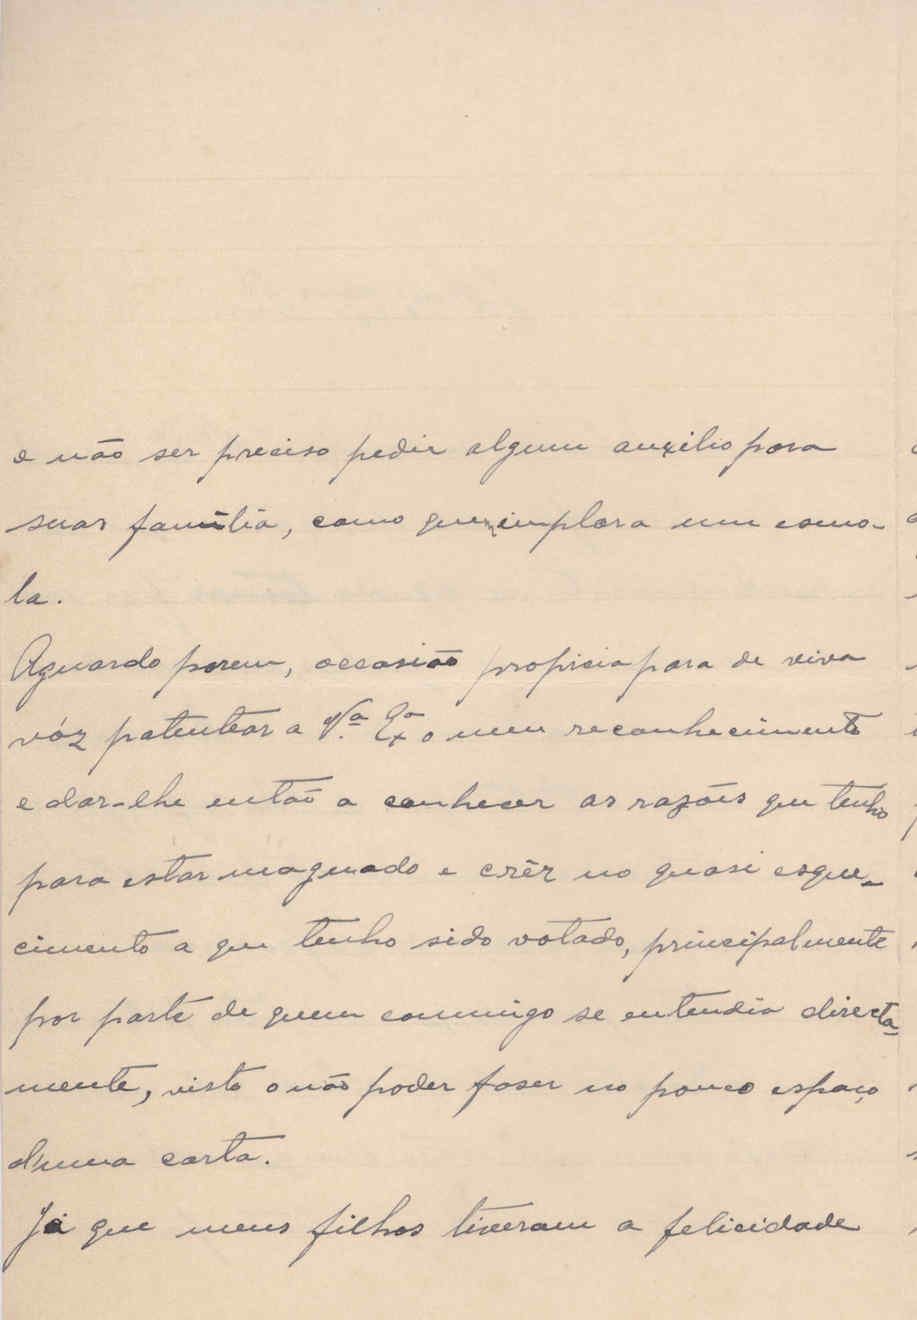 e não ser preciso pedir algum auxilio para
suas familia, como quem implora um esmo-
la.
Aguardo porem, occasião propicia para de viva
vóz patentear a Vª. Exª o meu reconhecimento
e dar-lhe então a conhecer as razõis que tenho
para estar maguado e crêr no quasi esque-
cimento a que tenho sido votado, principalmente
por parte de quem commigo se entendia directa-
mente, visto o não poder faser no pouco espaço
d'uma carta.
Já que meus filhos tiveram a felicidade